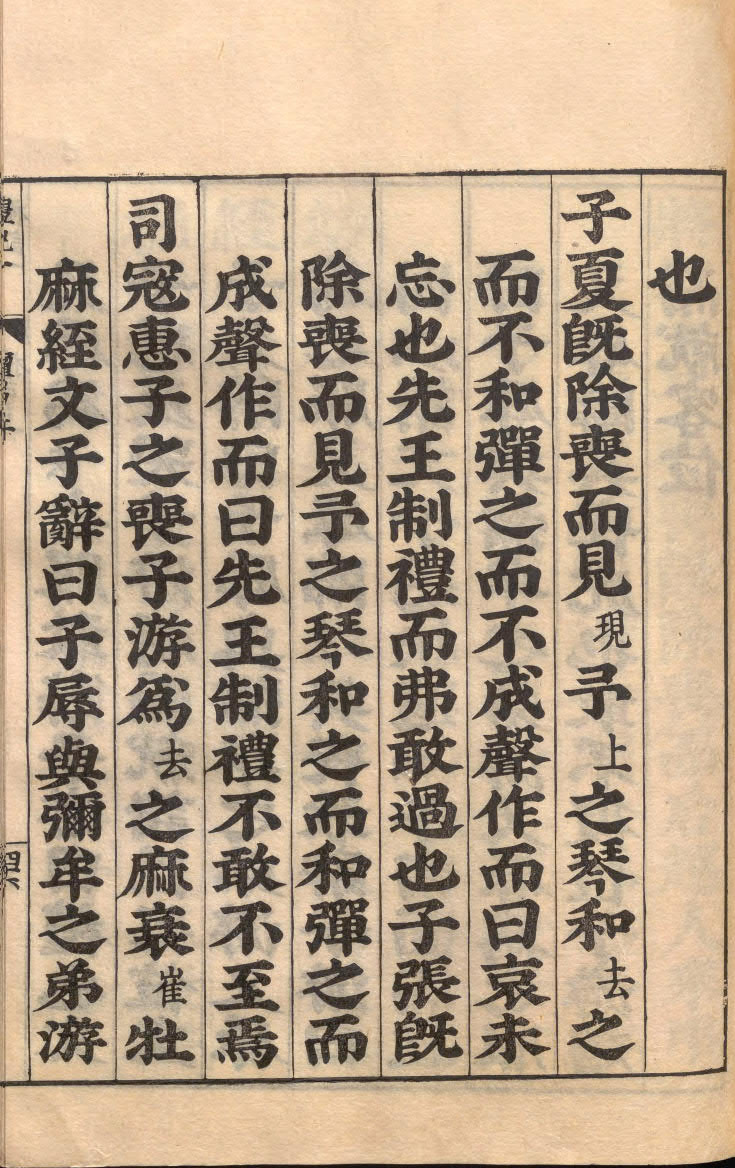 也
子夏旣除喪而見現予上之琴和去之
而不和彈之而不成聲作而曰哀未
忘也先王制禮而弗敢過也子張旣
除喪而見予之琴和之而和彈之而
成聲作而曰先王制禮不敢不至焉
司寇惠子之喪子游爲去之麻衰崔牡
麻絰文子辭曰子辱與彌牟之弟游